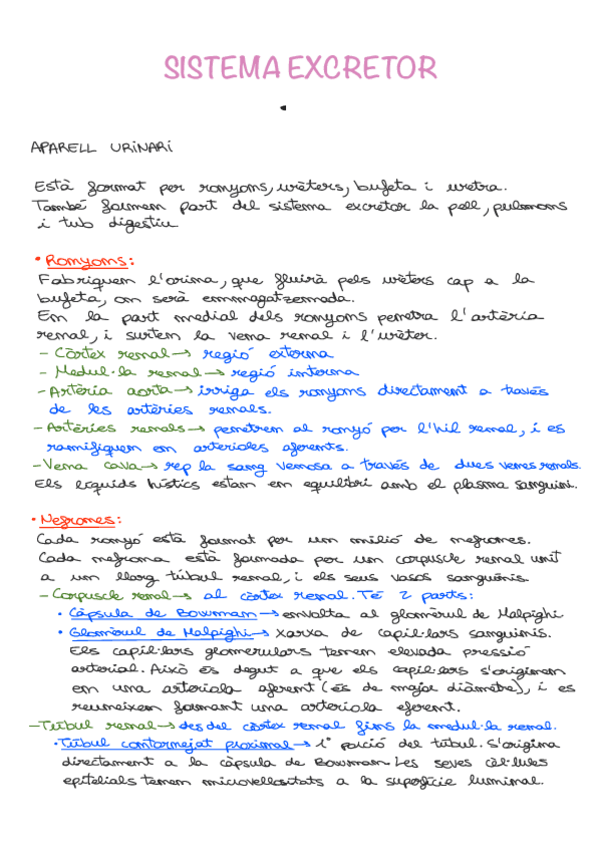 SISTEMA EXCRETOR
APARELL URINARI
Està format per ronyons, urèters, bufeta i uretra.
També formen part del sistema excretor la pell, pulmons
i tub digestiu
• Ronyons:
Fabriquen l'orina, que fluirà pels urèters cap a la
bufeta, on serà emmagatzemada.
En la part medial dels ronyons penetra l'artèria
renal, i surten la vena renal i l'urèter.
- Còrtex renal → regió externa
- Medul·la renal → regió interna
- Artèria aorta → irriga els ronyons directament a través
de les artèries renals.
- Artèries renals → penetren al ronyó per l'hil renal, i es
ramifiquen en arterioles aferents.
- Vena cava → rep la sang venosa a través de dues venes renals.
Els líquids hístics estan en equilibri amb el plasma sanguini.
• Nefrones:
Cada ronyó està format per un milió de nefrones.
Cada nefrona està formada per un corpuscle renal unit
a un llarg túbul renal, i els seus vasos sanguinis.
- Corpuscle renal → al còrtex renal. Té 2 parts:
• Càpsula de Bowman → envolta al glomèrul de Malpighi
• Glomèrul de Malpighi → Xarxa de capil·lars sanguinis.
Els capil·lars glomerulars tenen elevada pressió
arterial. Això és degut a que els capil·lars s'originen
en una arteriola aferent (és de major diàmetre), i es
reuneixen formant una arteriola eferent.
- Túbul renal → des del còrtex renal fins la medul·la renal.
• Túbul contornejat proximal → 1ª porció del túbul. S'origina
directament a la càpsula de Bowman. Les seves cèl·lules
epitelials tenen microvellositats a la superfície luminal.